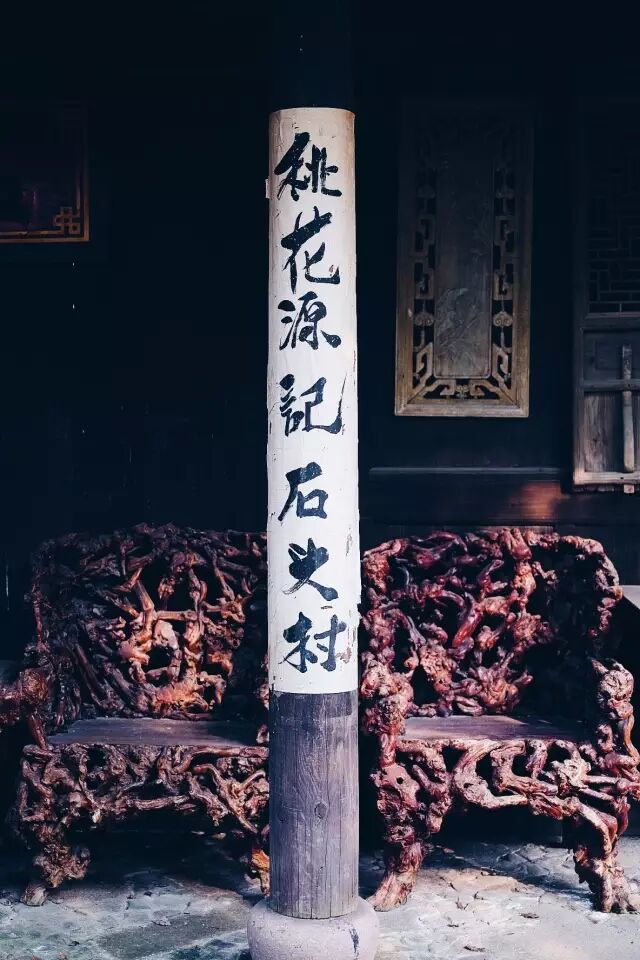 桃花源記石头村